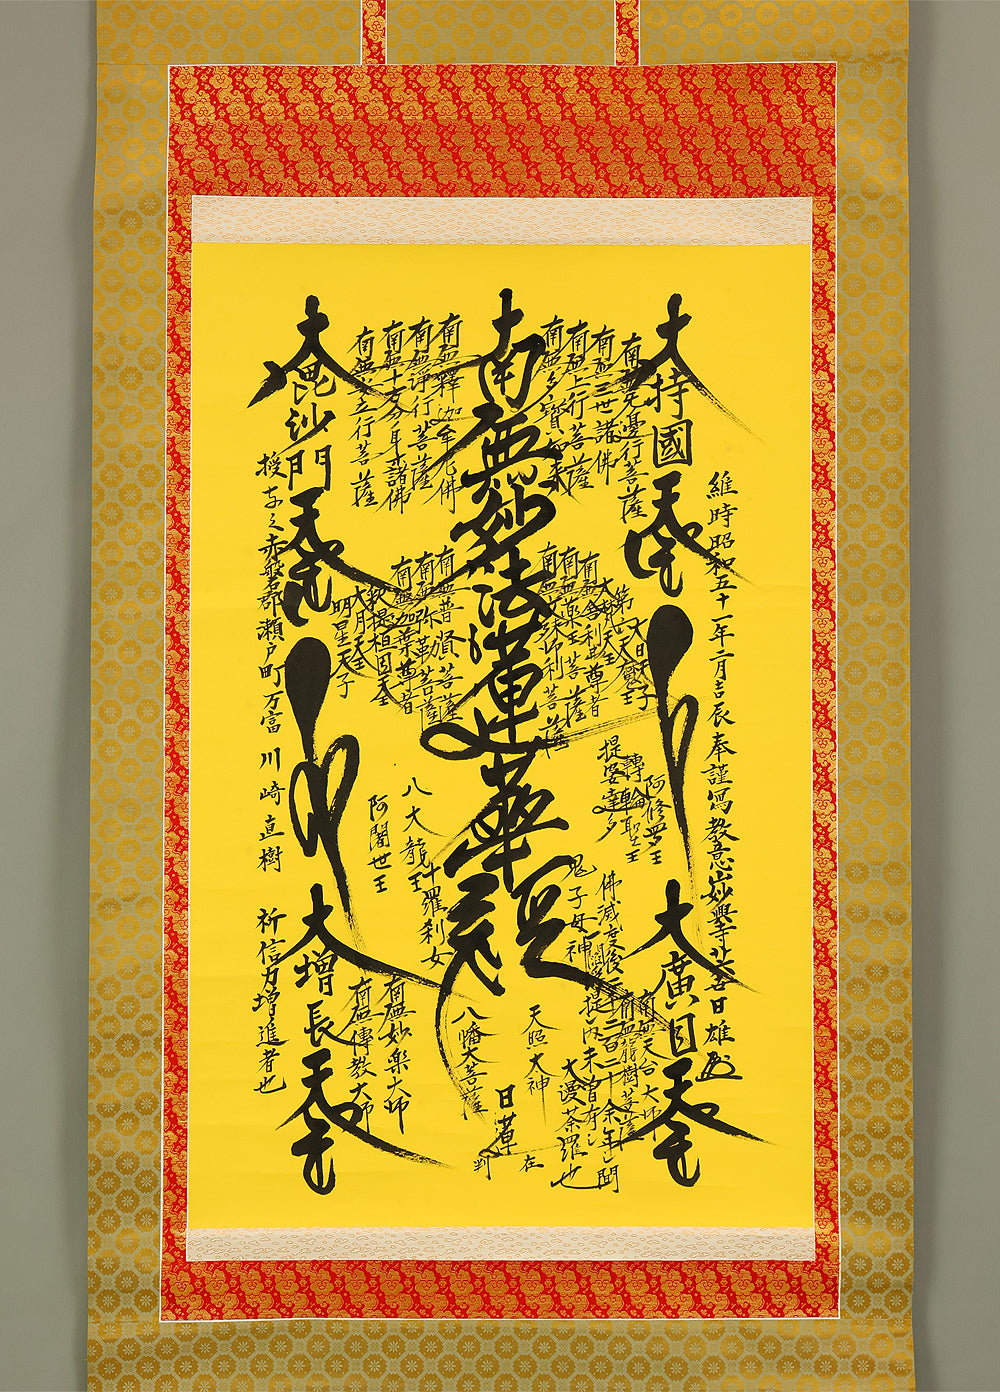 維時昭和五十一年二月吉辰奉謹寫教意山妙興寺廿六吉日雄
大持國天王
大廣目天王
南無無邊行菩薩
南無三世諸佛
南無上行菩薩
南無多寶如來
南無妙法蓮華經
南無釋迦牟尼佛
南無淨行菩薩
南無十方分身諸佛
南無安立行菩薩
大日天子
第六天魔王
大梵天王
南無舍利弗尊者
南無藥王菩薩
南無文殊師利菩薩
南無普賢菩薩
南無弥勒菩薩
南無迦葉尊者
釈提桓因天王
大月天王
明星天子
阿修羅王
轉輪聖王
提婆達多
鬼子母神
八大龍王
十羅刹女
阿闍世王
南無天台大師
南無龍樹菩薩
佛滅度後二千二百二十余年之間
一閻浮提之内未曾有之
大漫荼羅也
天照大神
八幡大菩薩
日蓮
在
判
南無妙樂大師
南無傳教大師
大毘沙門天王
大增長天王
授与之赤磐郡瀬戸町万富 川崎直樹 祈信力増進者也